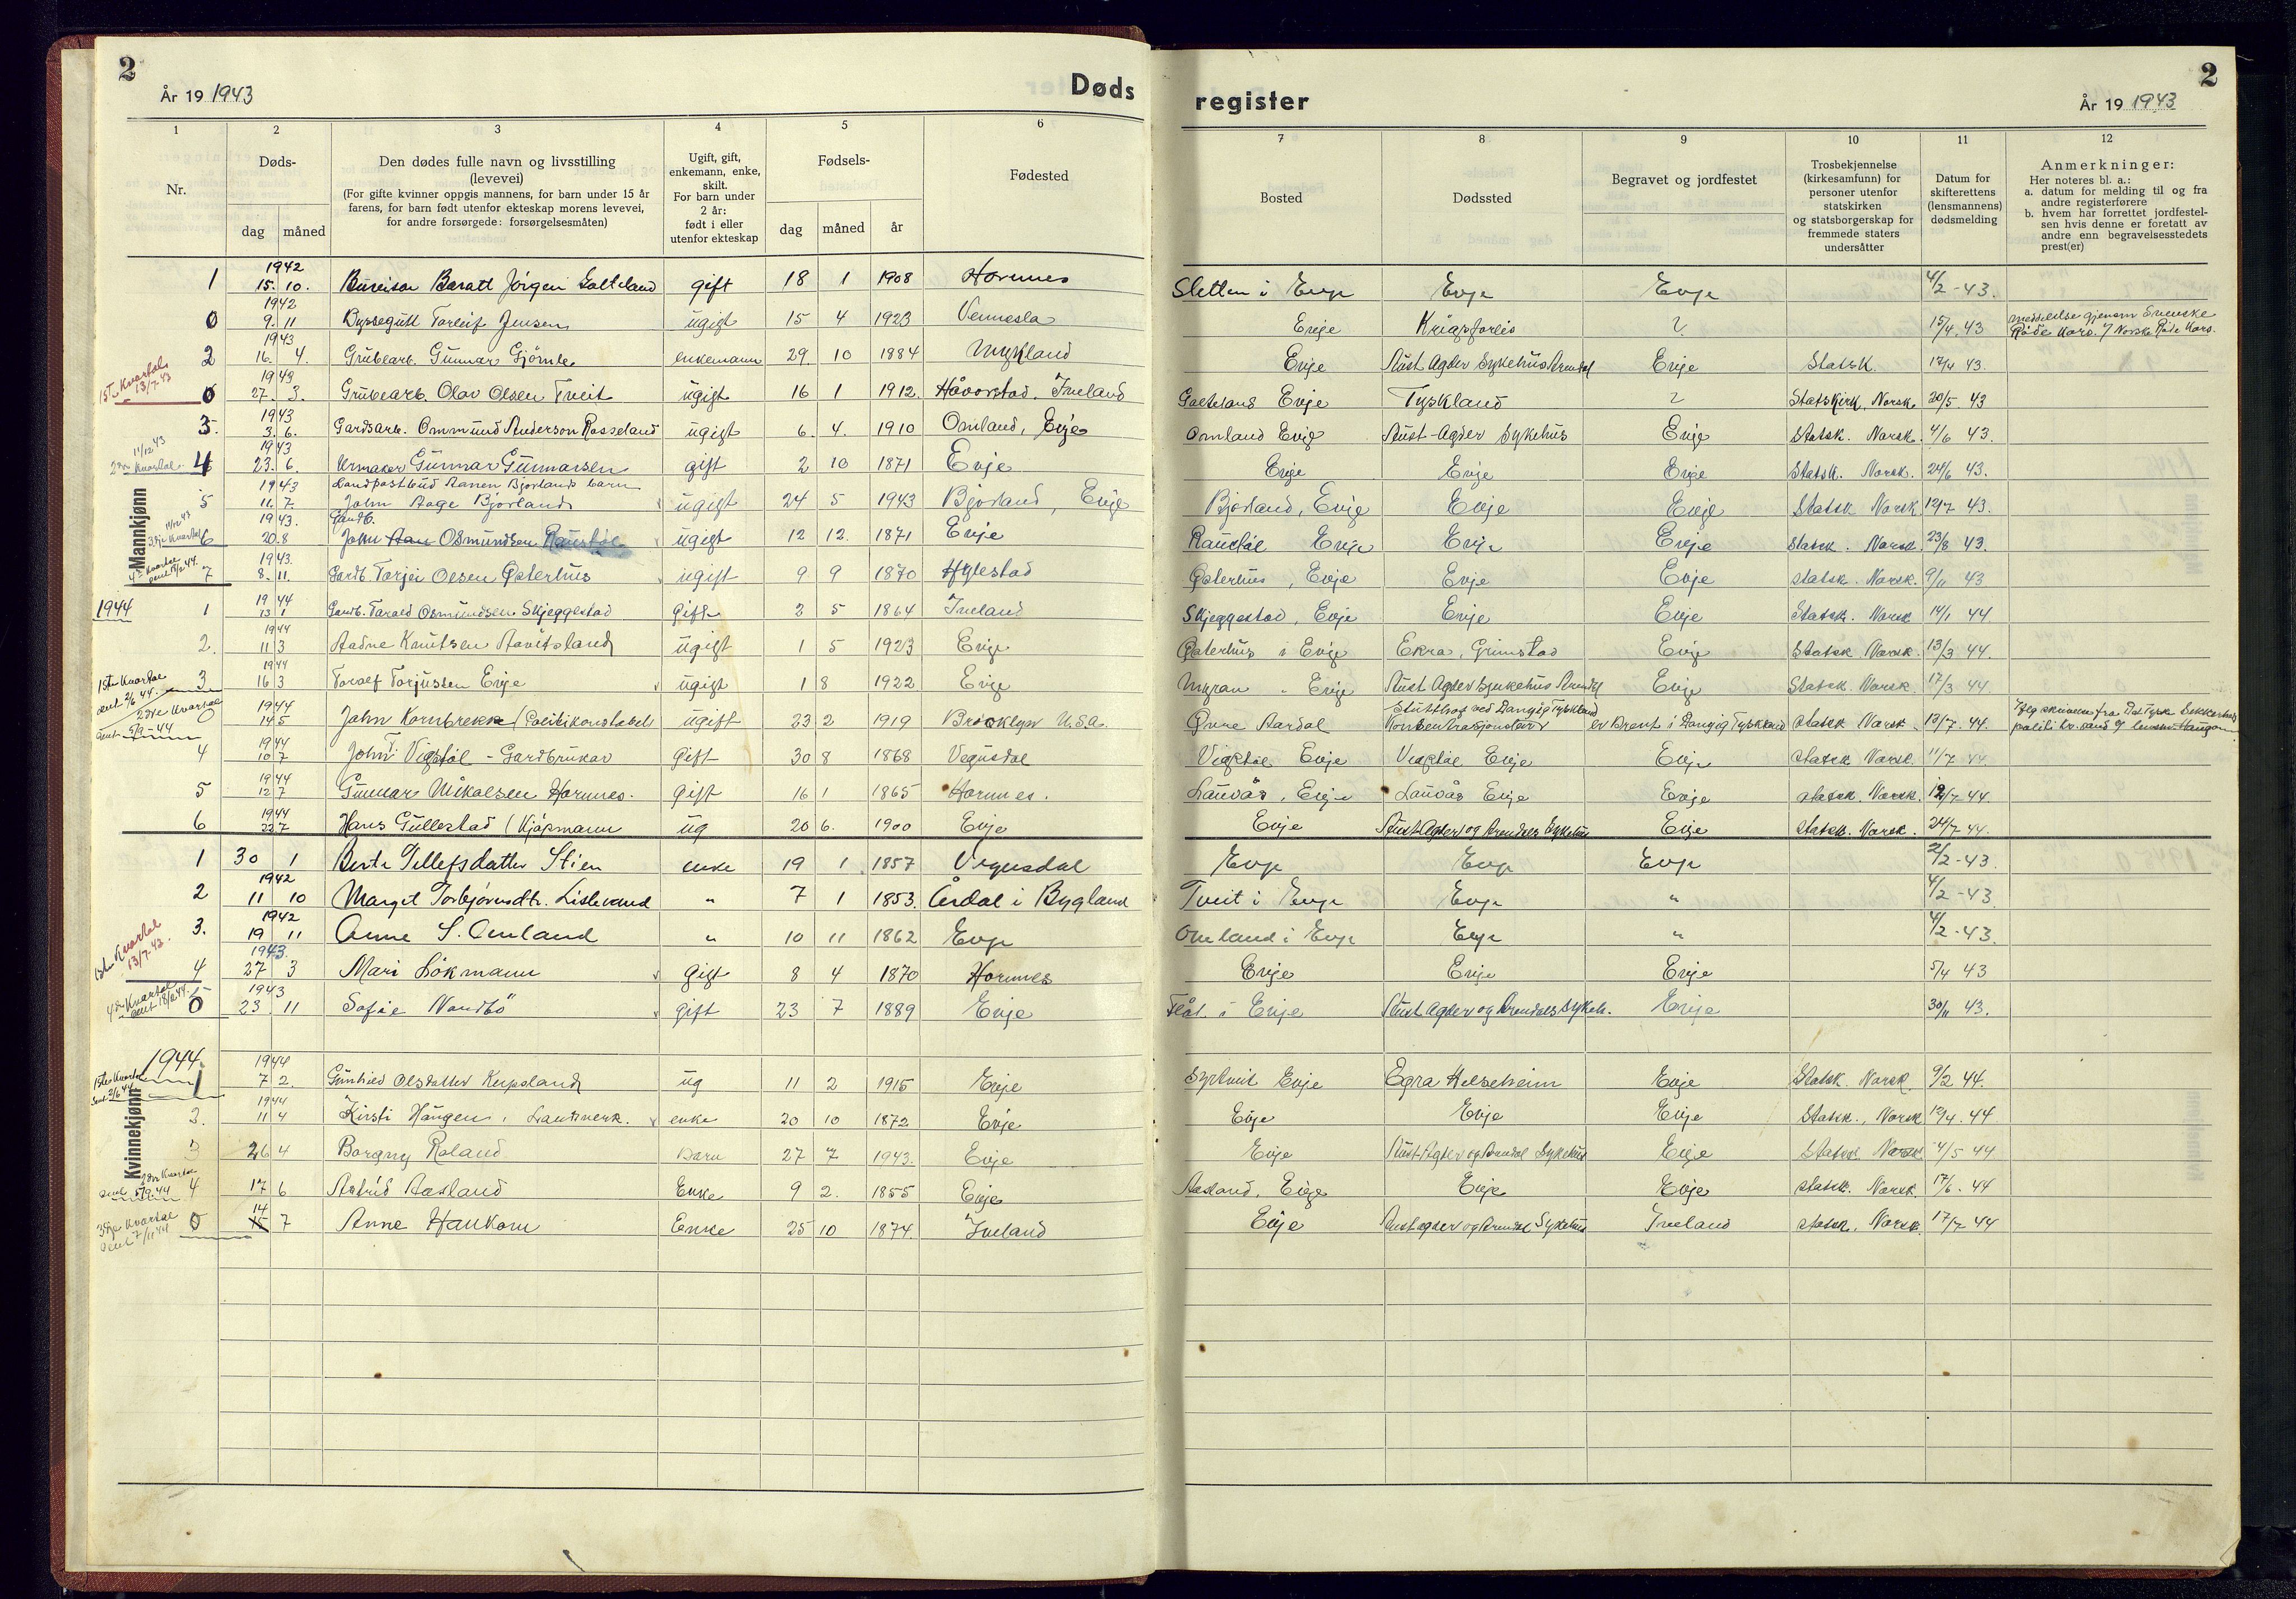 2
År 19 1943
Døds
register
År 19 1943
2
1 2 3 4 5 6 7 8 9 10 11 12
Nr.
Døds-
dag måned
Den dødes fulle navn og livsstilling
(levevei)
(For gifte kvinner oppgis mannens, for barn under 15 år
farens, for barn født utenfor ekteskap morens levevei,
for andre forsørgede: forsørgelsesmåten)
Ugift, gift,
enkemann, enke,
skilt.
For barn under
2 år:
født i eller
utenfor ekteskap
Fødsels-
dag måned år
Fødested
Bosted
Dødssted
Begravet og jordfestet
Trosbekjennelse
(kirkesamfunn) for
personer utenfor
statskirken
og statsborgerskap for
fremmede staters
undersåtter
Datum for
skifterettens
(lensmannens)
dødsmelding
Anmerkninger:
Her noteres bl. a.:
a. datum for melding til og fra
andre registerførere
b. hvem har forrettet jordfestel-
sen hvis denne er foretatt av
andre enn begravelsesstedets
prest(er)
Mannkjønn
1 1942 15. 10. Jørgen Galteland gift 18 1 1908 Hornnes Sletten i Evje Evje Evje 4/2-43.
0 1942 9. 11 Torleif Jensen ugift 15 4 1923 Vennesla Evje Krigsforlis ? 15/4 43 meddelelse gjenom Svenske
Røde Kors. / Norske Røde Kors.
2 1943 16. 4. Grubearb. Gunnar enkemann 29 10 1884 Mykland Evje Aust Agder Sykehus Arendal Evje Statsk. 17/4 43.
1ste Kvartal 13/7-43
0 1943 27. 3. Grubearb. Olav Olsen Tveit ugift 16 1 1912. Håvorstad. Iveland Galteland Evje Tyskland ? Statskirk. Norsk. 20/5. 43
3. 1943 3. 6. Gardsarb. Ommund Anderson Rosseland ugift 6. 4. 1910 Omland, Evje Omland Evje Aust-Agder Sykehus Evje Statsk. Norsk. 4/6 43.
11/12 43
4 1943 23. 6. Urmaker Gunnar Gunnarsen gift 2 10 1871 Evje Evje Evje Evje Statsk. Norsk. 24/6 43.
Landpostbud Aanen Bjorlands barn
5 1943 11. 7. John Aage Bjorland ugift 24 5 1943 Bjorland, Evje Bjorland, Evje Evje Evje Statsk Norsk 12/7 43.
Gardb.
6 1943. 20. 8 John Osmundsen Raustøl ugift 12 12. 1871 Evje Raustøl Evje Evje Evje Statsk. Norsk 23/8 43.
7 1943. 8. 11. Gardb. Torjei Olsen Østerhus ugift 9 9 1870 Hylestad Østerhus, Evje Evje Evje statsk. Norsk. 9/11 43
1944
1 1944 13 1 Gardb. Tarald Osmundsen Skjeggestad Gift 2 5 1864 Iveland Skjeggestad, Evje Evje Evje Statsk. Norsk 14/1 44.
2. 1944 11 3 Aadne Knutsen ugift 1 5 1923 Evje Østerhus i Evje Ekra, Grimstad Evje Statsk Norsk. 13/3 44.
3 1944 16 3 Toralf Torjussen Evje ugift 1 8 1922 Evje Myran " Evje Aust Agder Sjukehus Arendal Evje Statsk Norsk. 17/3 44.
1ste Kvartal sent 2/6 44.
2dre Kvartal sent 5/9-44
0 1944 14 5 John Kornbrekk (Politikonstabel) ugift 23 2 1919 Brooklyn U.S.A. Øvre Aardal Stutthof ved Danzig Tyskland
Konsentrasjonsleir er brent i Danzig Tyskland statsk Norsk. 13/7. 44.
4 1944 10 7 John T. Vigstøl - Gardbruker Gift 30 8 1868 Vegusdal Vigstøl Evje Vigstøl Evje Evje statsk Norsk. 11/7 44.
5 1944 12 7 Gunnar Mikalsen Hornnes. Gift 16 1 1865 Hornnes. Lauvås, Evje Lauvås Evje Evje statsk. Norsk. 12/7 44.
6 1944 22 7 Hans Gullestad (Kjøpmann ug 20 6. 1900 Evje Evje Aust Agder og Arendals Sykehus Evje statsk. Norsk. 24/7 44.
Kvinnekjønn
1 30 1 Berte Tellefsdatter Stien enke 19 1 1857 Vegusdal Evje Evje Evje 2/2-43.
2 1942 11 10 Margit Torbjørnsdtr. Lislevand " 7 1 1853. Årdal i Bygland Tveit i Evje Evje " 4/2-43
3. 1942 19 11 Anne S. Omland " 10 11 1862 Evje Omland i Evje Evje " 4/2-43.
1ste Kvartal 13/7-43.
4 1943. 27 3 Mari Løkmann gift 8 4 1870 Hornnes Evje Evje Evje 5/4 43
0 1943 23. 11 Sofie gift 23 7 1889 Evje Flåt i Evje Aust Agder og Arendals Sykeh. Evje 30/11 43.
1944.
1 1944 7 2. Gunhild Olsdatter ug 11 2 1915 Evje Evje Egra Helseheim Evje Statsk. Norsk. 9/2 44.
2. 1944 11 4 Kirsti Haugen, enke 20 10 1872 Evje Evje Evje Evje Statsk., Norsk 12/4. 44
3 26 4 Borgny Roland Barn 27 7 1943. Evje Evje Aust-Agder og Arendal Sykehus Evje Statsk Norsk 4/5 44
2dre Kvartal sent 5/9 44
4 17 6 Astrid Aasland Enke 9 2. 1855 Evje Aasland, Evje Evje Evje statsk. Norsk. 17/6. 44
3dje Kvartal sent 7/11 44
0 14 7 Anne Haukom Enke 25 10 1874. Iveland Evje Aust agder og Arendal Sykehus Iveland statsk. Norsk. 17/7 44